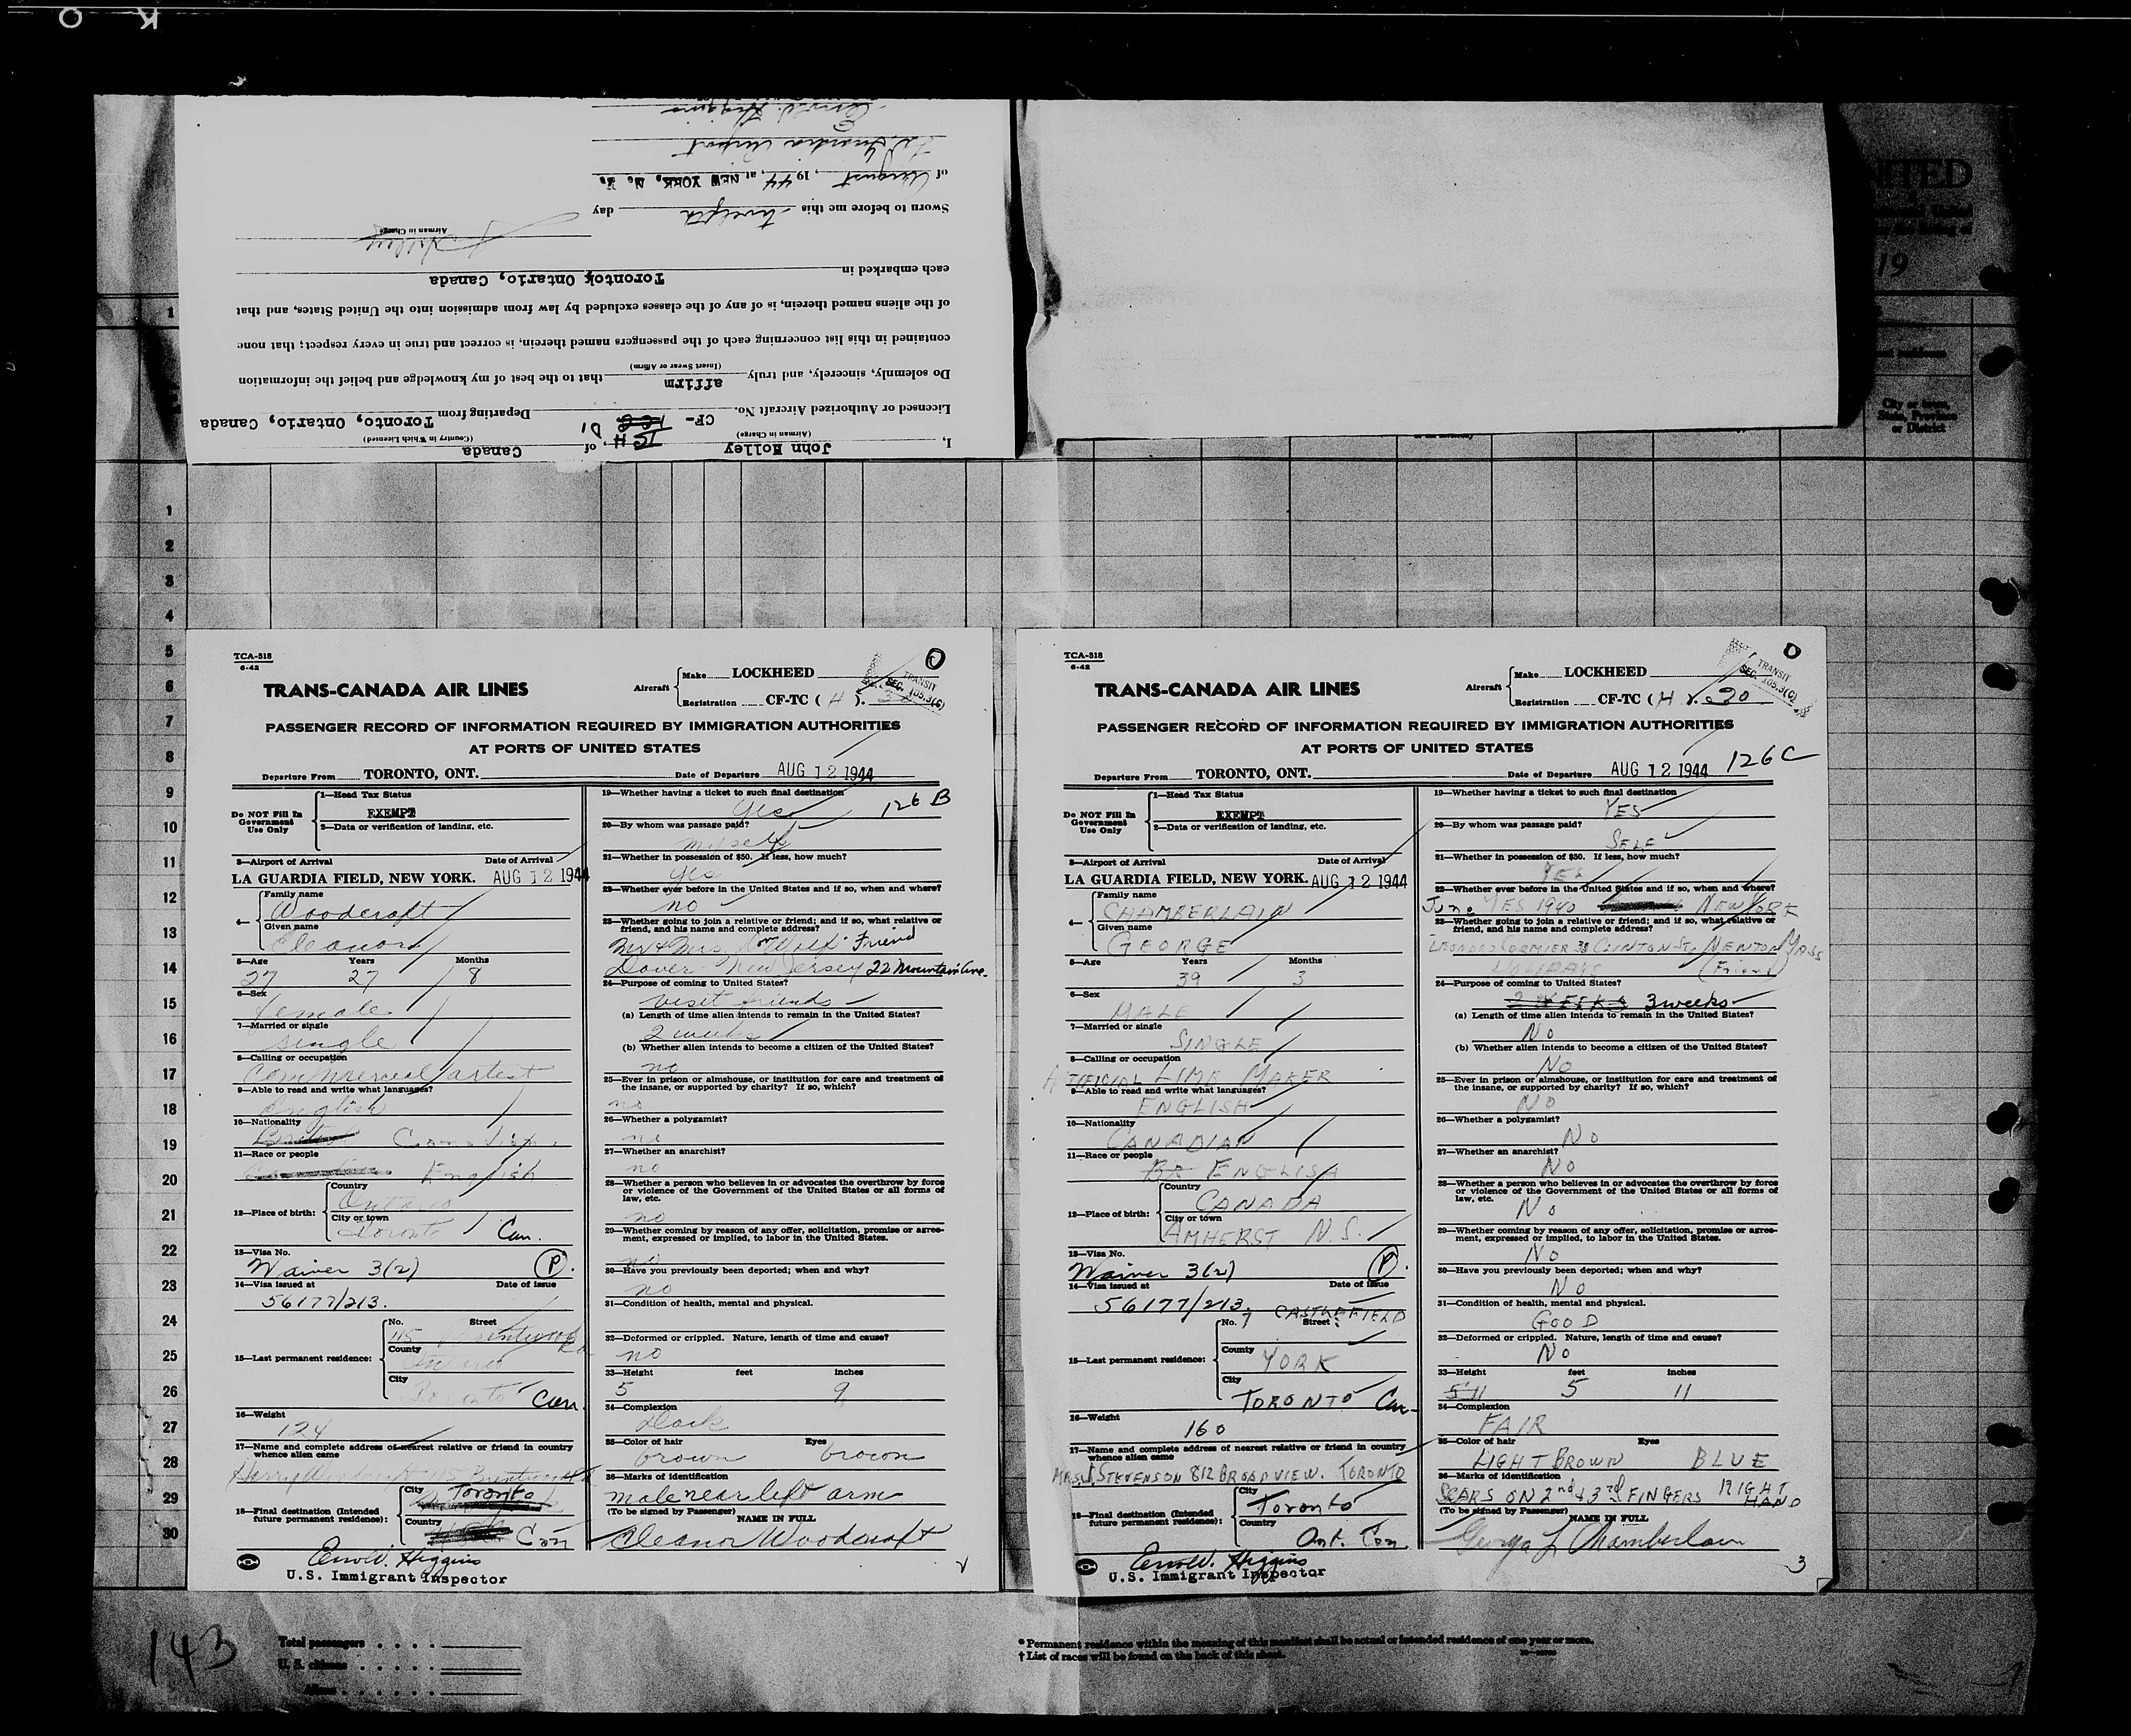 O K
Sworn to before me this twelfth day
of August, 1944, at NEW YORK, N. Y.
La Guardia Airport
Errol D. Higgins
I, John Holley, of Canada
(Airman in Charge) (Country in Which Licensed)
Licensed or Authorized Aircraft No. CF- TCH D1 Departing from Toronto, Ontario, Canada
Do solemnly, sincerely, and truly affirm that to the best of my knowledge and belief the information
(Insert Swear or Affirm)
contained in this list concerning each of the passengers named therein, is correct and true in every respect; that none
of the aliens named therein, is of any of the classes excluded by law from admission into the United States, and that
each embarked in Torontok Ontario, Canada
Airman in Charge
NITED
19
City or town,
State, Province
or District
1
1
2
3
4
5
6
7
8
9
10
11
12
13
14
15
16
17
18
19
20
21
22
23
24
25
26
27
28
29
30
TCA-318
6-42
O
TRANS-CANADA AIR LINES
Aircraft Make LOCKHEED
Registration CF-TC ( H ).
TRANSIT
SEC. 105.3(G)
PASSENGER RECORD OF INFORMATION REQUIRED BY IMMIGRATION AUTHORITIES
AT PORTS OF UNITED STATES
Departure From TORONTO, ONT. Date of Departure AUG 12 1944
Do NOT Fill In
Government
Use Only
1—Head Tax Status
EXEMPT
2—Data or verification of landing, etc.
3—Airport of Arrival Date of Arrival
LA GUARDIA FIELD, NEW YORK. AUG 12 1944
4— Family name
Woodcroft
Given name
Eleanor
5—Age Years Months
27 27 8
6—Sex
female
7—Married or single
single
8—Calling or occupation
Commercial artist
9—Able to read and write what languages?
English
10—Nationality
British Canadian
11—Race or people
English
12—Place of birth: Country
Ontario
City or town
Toronto Can.
13—Visa No.
Waiver 3(2) P.
14—Visa issued at Date of issue
56177/213.
15—Last permanent residence: No. Street
115 Brentwood Rd
County
Ontario
City
Toronto Can.
16—Weight
124
17—Name and complete address of nearest relative or friend in country
whence alien came
Harry Woodcroft 115 Brentwood Rd
18—Final destination (Intended
future permanent residence): City
Toronto
Country
Can
Errol D. Higgins
U.S. Immigrant Inspector
19—Whether having a ticket to such final destination
Yes 126 B
20—By whom was passage paid?
myself
21—Whether in possession of $50. If less, how much?
yes
22—Whether ever before in the United States and if so, when and where?
no
23—Whether going to join a relative or friend; and if so, what relative or
friend, and his name and complete address?
Mr & Mrs. Wolf Friend
Dover New Jersey 22 Mountain Ave.
24—Purpose of coming to United States?
visit friends
(a) Length of time alien intends to remain in the United States?
2 weeks
(b) Whether alien intends to become a citizen of the United States?
no
25—Ever in prison or almshouse, or institution for care and treatment of
the insane, or supported by charity? If so, which?
no
26—Whether a polygamist?
no
27—Whether an anarchist?
no
28—Whether a person who believes in or advocates the overthrow by force
or violence of the Government of the United States or all forms of
law, etc.
no
29—Whether coming by reason of any offer, solicitation, promise or agree-
ment, expressed or implied, to labor in the United States.
no
30—Have you previously been deported; when and why?
no
31—Condition of health, mental and physical.
32—Deformed or crippled. Nature, length of time and cause?
no
33—Height feet inches
5 9
34—Complexion
Dark
35—Color of hair Eyes
brown brown
36—Marks of identification
mole near left arm
(To be signed by Passenger) NAME IN FULL
Eleanor Woodcroft
TCA-318
6-42
O
TRANS-CANADA AIR LINES
Aircraft Make LOCKHEED
Registration CF-TC ( H ). 30
TRANSIT
SEC. 105.3(G)
PASSENGER RECORD OF INFORMATION REQUIRED BY IMMIGRATION AUTHORITIES
AT PORTS OF UNITED STATES
126 C
Departure From TORONTO, ONT. Date of Departure AUG 12 1944
Do NOT Fill In
Government
Use Only
1—Head Tax Status
EXEMPT
2—Data or verification of landing, etc.
3—Airport of Arrival Date of Arrival
LA GUARDIA FIELD, NEW YORK. AUG 12 1944
4— Family name
CHAMBERLAIN
Given name
GEORGE
5—Age Years Months
39 3
6—Sex
MALE
7—Married or single
SINGLE
8—Calling or occupation
ARTIFICIAL LIMB MAKER
9—Able to read and write what languages?
ENGLISH
10—Nationality
CANADIAN
11—Race or people
BR ENGLISH
12—Place of birth: Country
CANADA
City or town
AMHERST N.S.
13—Visa No.
Waiver 3(2) P.
14—Visa issued at Date of issue
56177/213.
15—Last permanent residence: No. Street
7 CASTLEFIELD
County
YORK
City
TORONTO Can.
16—Weight
160
17—Name and complete address of nearest relative or friend in country
whence alien came
STEVENSON 812 BROADVIEW. TORONTO
18—Final destination (Intended
future permanent residence): City
Toronto
Country
Ont. Can.
Errol D. Higgins
U.S. Immigrant Inspector
19—Whether having a ticket to such final destination
YES
20—By whom was passage paid?
SELF
21—Whether in possession of $50. If less, how much?
YES
22—Whether ever before in the United States and if so, when and where?
June YES 1940 NEW YORK
23—Whether going to join a relative or friend; and if so, what relative or
friend, and his name and complete address?
LEONARD CORMIER 38 CLINTON ST. NEWTON MASS
HOLIDAYS (Friend)
24—Purpose of coming to United States?
2 WEEKS 3 weeks
(a) Length of time alien intends to remain in the United States?
NO
(b) Whether alien intends to become a citizen of the United States?
NO
25—Ever in prison or almshouse, or institution for care and treatment of
the insane, or supported by charity? If so, which?
NO
26—Whether a polygamist?
NO
27—Whether an anarchist?
NO
28—Whether a person who believes in or advocates the overthrow by force
or violence of the Government of the United States or all forms of
law, etc.
NO
29—Whether coming by reason of any offer, solicitation, promise or agree-
ment, expressed or implied, to labor in the United States.
NO
30—Have you previously been deported; when and why?
NO
31—Condition of health, mental and physical.
GOOD
32—Deformed or crippled. Nature, length of time and cause?
NO
33—Height feet inches
5'11 5 11
34—Complexion
FAIR
35—Color of hair Eyes
LIGHT BROWN BLUE
36—Marks of identification
SCARS ON 2nd & 3rd FINGERS RIGHT HAND
(To be signed by Passenger) NAME IN FULL
George L Chamberlain
3
143
Total passengers
U. S. citizens
Aliens
* Permanent residence within the meaning of this manifest shall be actual or intended residence of one year or more.
† List of races will be found on the back of this sheet.